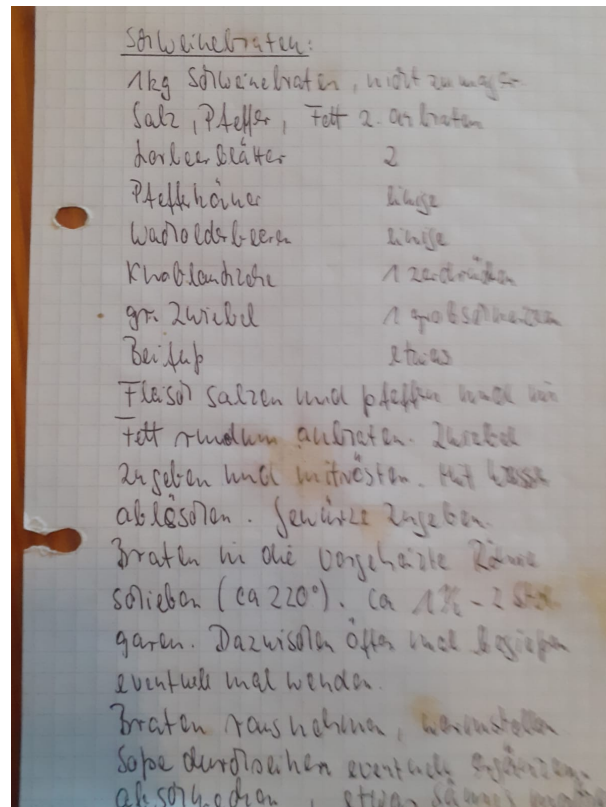 Schweinebraten:
1kg Schweinebraten, nicht zu mager
Salz, Pfeffer, Fett z. anbraten
Lorbeerblätter 2
Pfefferkörner einige
Wacholderbeeren einige
Knoblauchzehe 1 zerdrücken
gr. Zwiebel 1 grobschneiden
Beifuß etwas
Fleisch salzen und pfeffern und im
Fett rundum anbraten. Zwiebel
zugeben und mitrösten. Mit Wasser
ablöschen. Gewürze zugeben.
Braten in die vorgeheizte Röhre
schieben (ca 220°). ca 1½ - 2 Std.
garen. Dazwischen öfter mal begießen
eventuell mal wenden.
Braten rausnehmen, warmstellen
Soße durchseihen eventuell
abschmecken, etwas